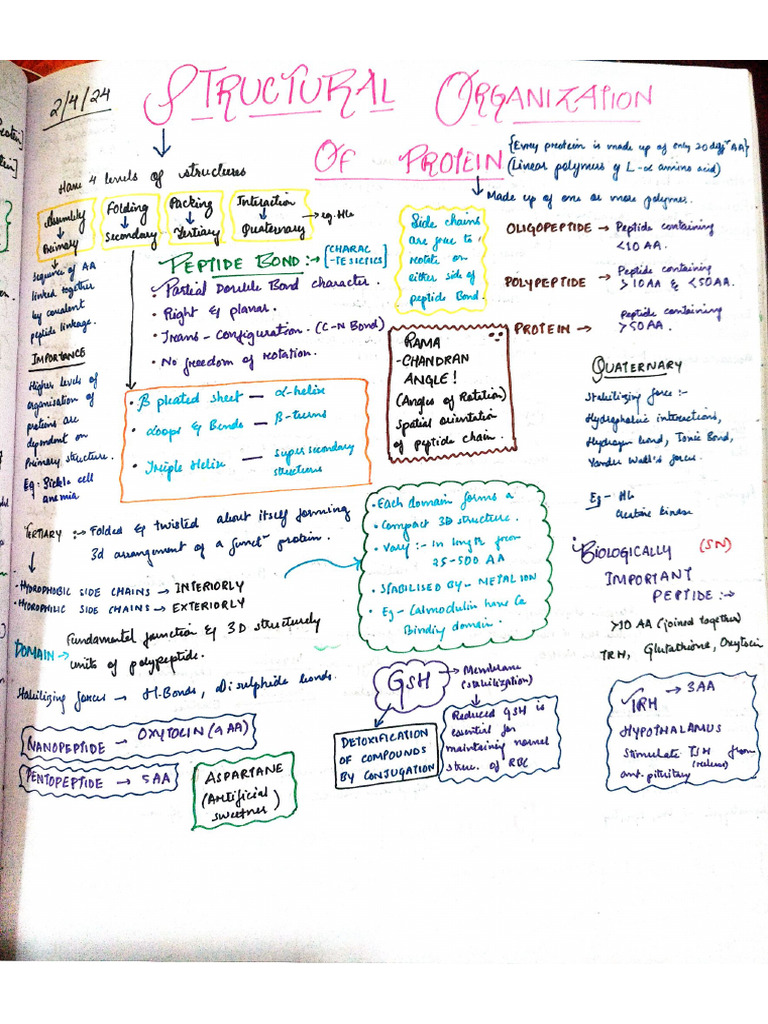 2/4/24
STRUCTURAL ORGANIZATION
OF PROTEIN
{Every protein is made up of only 20 diff^n AA}
(Linear polymers of L-α amino acid)
Made up of one or more polymer.
Have 4 levels of structures
Assembly
Primary
Folding
Secondary
Packing
Tertiary
Interaction
Quaternary
eg. Hb
Sequence of AA
linked together
by covalent
peptide linkage.
IMPORTANCE
Higher levels of
organisation of
proteins are
dependent on
Primary structure.
Eg: Sickle cell
anemia
PEPTIDE BOND :→ [CHARAC
-TESICTICS]
• Partial Double Bond character.
• Right & planar.
• Trans - Configuration. (C-N Bond)
• No freedom of rotation.
Side chains
are free to
rotate on
either side of
peptide Bond.
OLIGOPEPTIDE → Peptide containing
<10 AA.
POLYPEPTIDE → Peptide containing
>10AA & <50AA.
PROTEIN → Peptide containing
>50AA.
RAMA
-CHANDRAN
ANGLE!
(Angles of Rotation)
Spatial orientation
of peptide chain.
• β pleated sheet — α-helix
• Loops & Bends — β-turns
• Triple Helix — super secondary
structures
QUATERNARY
Stabilizing force :-
Hydrophobic interactions,
Hydrogen bond, Ionic Bond,
Vander Wall's forces.
Eg - Hb
Creatine kinase
TERTIARY :→ Folded & twisted about itself forming
3d arrangement of a funct^n protein.
• HYDROPHOBIC SIDE CHAINS → INTERIORLY
• HYDROPHILIC SIDE CHAINS → EXTERIORLY
DOMAIN → Fundamental function & 3D structurely
units of polypeptide.
Stabilizing forces → H-Bonds, Di sulphide bonds.
• Each domain forms a
• Compact 3D structure.
• Vary :- In length from
25-500 AA
• STABILISED BY - METAL ION
• Eg - Calmodulin have Ca
Binding domain.
BIOLOGICALLY (SN)
IMPORTANT
PEPTIDE :→
>10 AA (joined together)
TRH, Glutathione, Oxytocin
GSH → Membrane
(stabilization)
DETOXIFICATION
OF COMPOUNDS
BY CONJUGATION
Reduced GSH is
essential for
maintaining normal
struc. of RBC
TRH → 3AA
HYPOTHALAMUS
Stimulate TSH from
(release)
ant. pituitary
NANOPEPTIDE → OXYTOCIN (9 AA)
PENTOPEPTIDE → 5AA
ASPARTANE
(Artificial
sweetner)